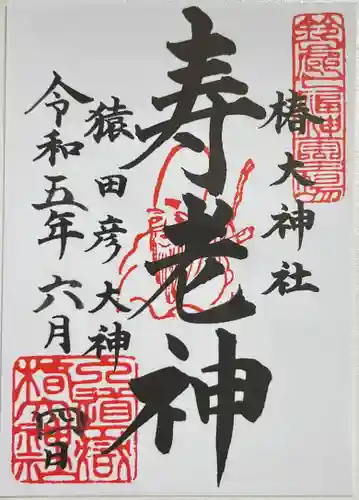 椿大神社
寿老神
猿田彦大神
令和五年六月四日